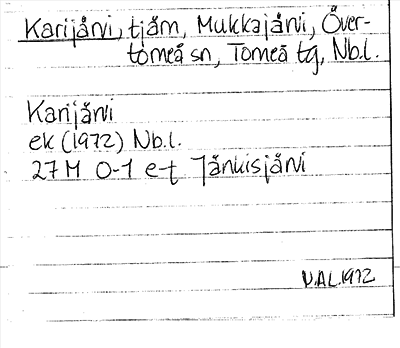 Karijärvi, tjärn, Mukkajärvi, Över-
torneå sn, Torneå tg, Nb.l.
Karijärvi
ek (1972) Nb.l.
27 M 0-1 e-f Jänkisjärvi
V.A.L. 1972